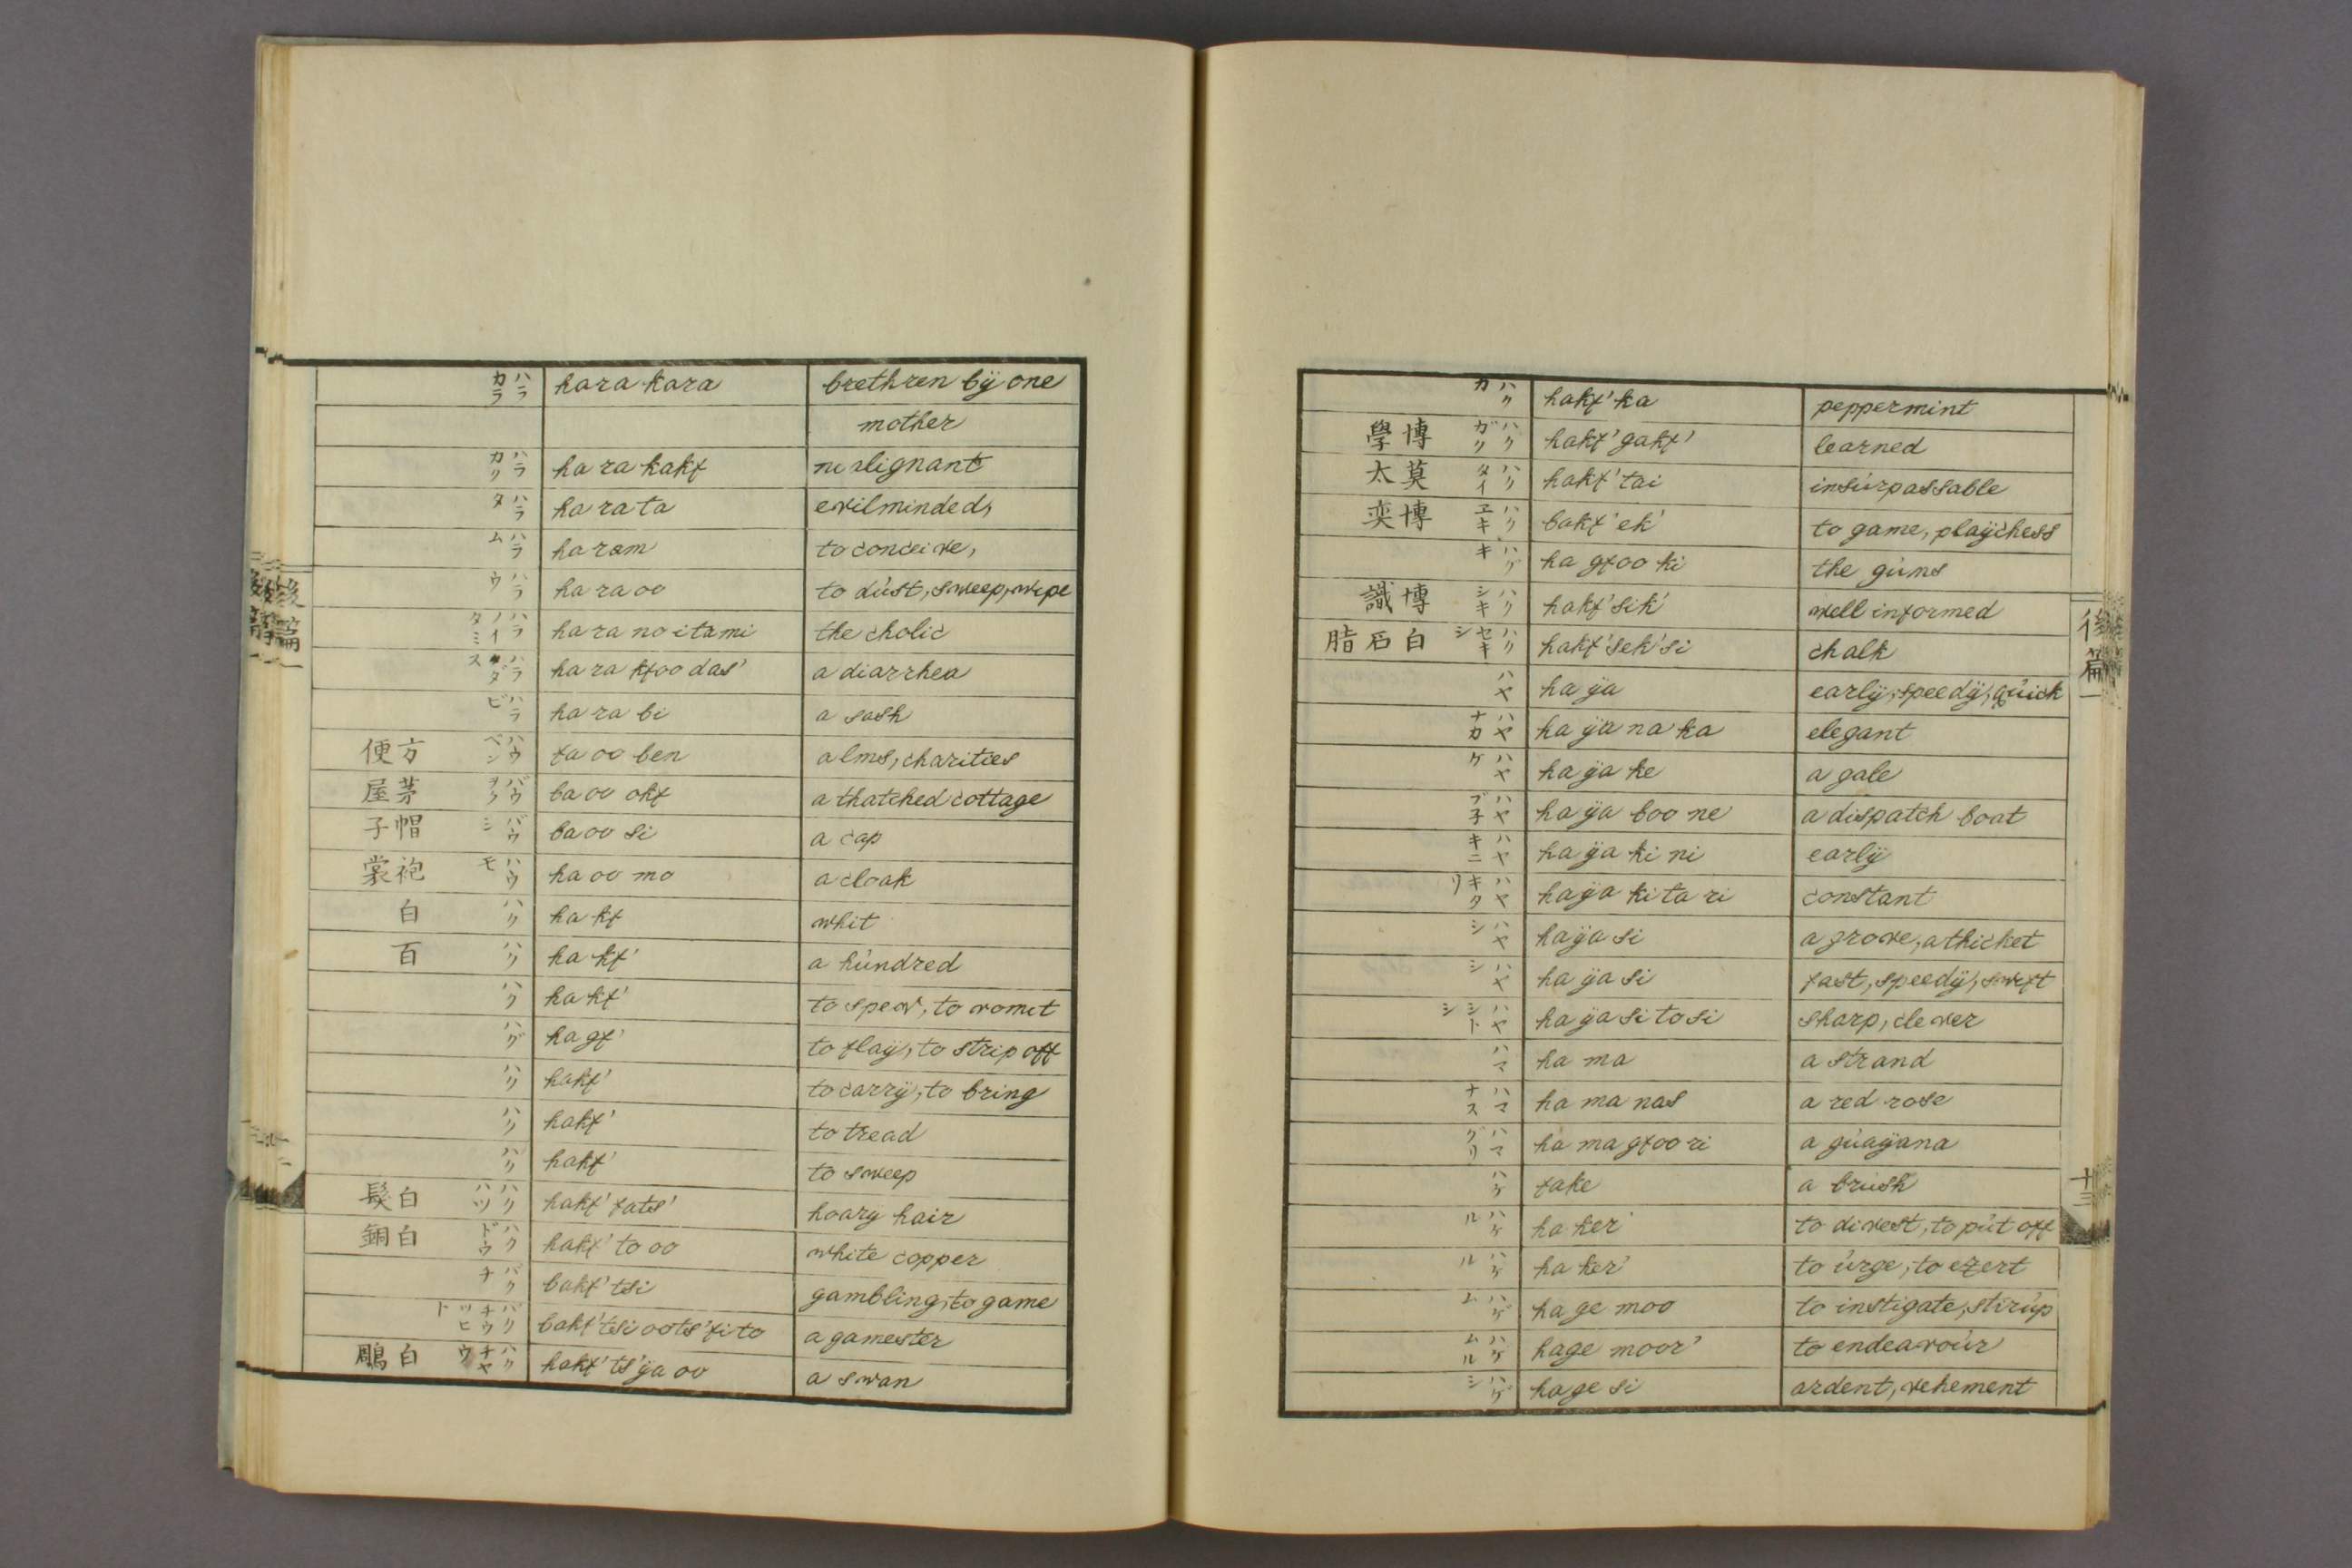 ハラカラ hara kara brethren bÿ one
mother
ハラカク ha ra kakf malignant
ハラタ ha ra ta evilminded,
ハラム ha ram to conceive,
ハラウ ha ra oo to dúst, sweep, wipe
ハラノイタミ ha ra no itami the cholic
ハラクダス ha ra kfoo das' a diarrhea
ハラビ ha ra bi a sash
便方 ハウベン fa oo ben alms, charities
屋茅 バウヲク ba oo okf a thatched cottage
子帽 バウシ ba oo si a cap
裳袍 ハウモ ha oo mo a cloak
白 ハク ha kf whit
百 ハク ha kf' a húndred
ハク ha kf' to spew, to vomit
ハグ ha gf' to flaÿ, to strip off
ハク hakf' to carrÿ, to bring
ハク hakf' to tread
ハク hakf' to sweep
髮白 ハクハツ hakf' fats' hoary hair
銅白 ハクドウ hakf' to oo white copper
バクチ bakf' tsi gambling, to game
バクチウツヒト bakf' tsi oots' fi to a gamester
鵰白 ハクチヤウ hakf' ts' ÿa oo a swan
ハクカ hakf' ka peppermint
學博 ハクガク hakf' gakf' learned
太莫 ハクタイ hakf' tai insúrpassable
奕博 ハクヱキ bakf' ek' to game, plaÿchess
ハグキ ha gfoo ki the gúms
識博 ハクシキ hakf' sik' well informed
脂石白 ハクセキシ hakf' sek' si chalk
ハヤ ha ÿa earlÿ, speedÿ, qúick
ハヤナカ ha ÿa na ka elegant
ハヤケ ha ÿa ke a gale
ハヤブ子 ha ÿa boo ne a dispatch boat
ハヤキニ ha ÿa ki ni earlÿ
ハヤキタリ ha ÿa ki ta ri constant
ハヤシ ha ÿa si a grove, a thicket
ハヤシ ha ÿa si fast, speedÿ, swift
ハヤシトシ ha ÿa si to si sharp, clever
ハマ ha ma a strand
ハマナス ha ma nas a red rose
ハマグリ ha ma gfoo ri a gúaÿana
ハケ fake a brúsh
ハケル ha ker' to divest, to pút off
ハケル ha ker' to úrge, to exert
ハゲム ha ge moo to instigate, stirúp
ハゲムル hage moor' to endeavoúr
ハゲシ ha ge si ardent, vehement
後篇
十三